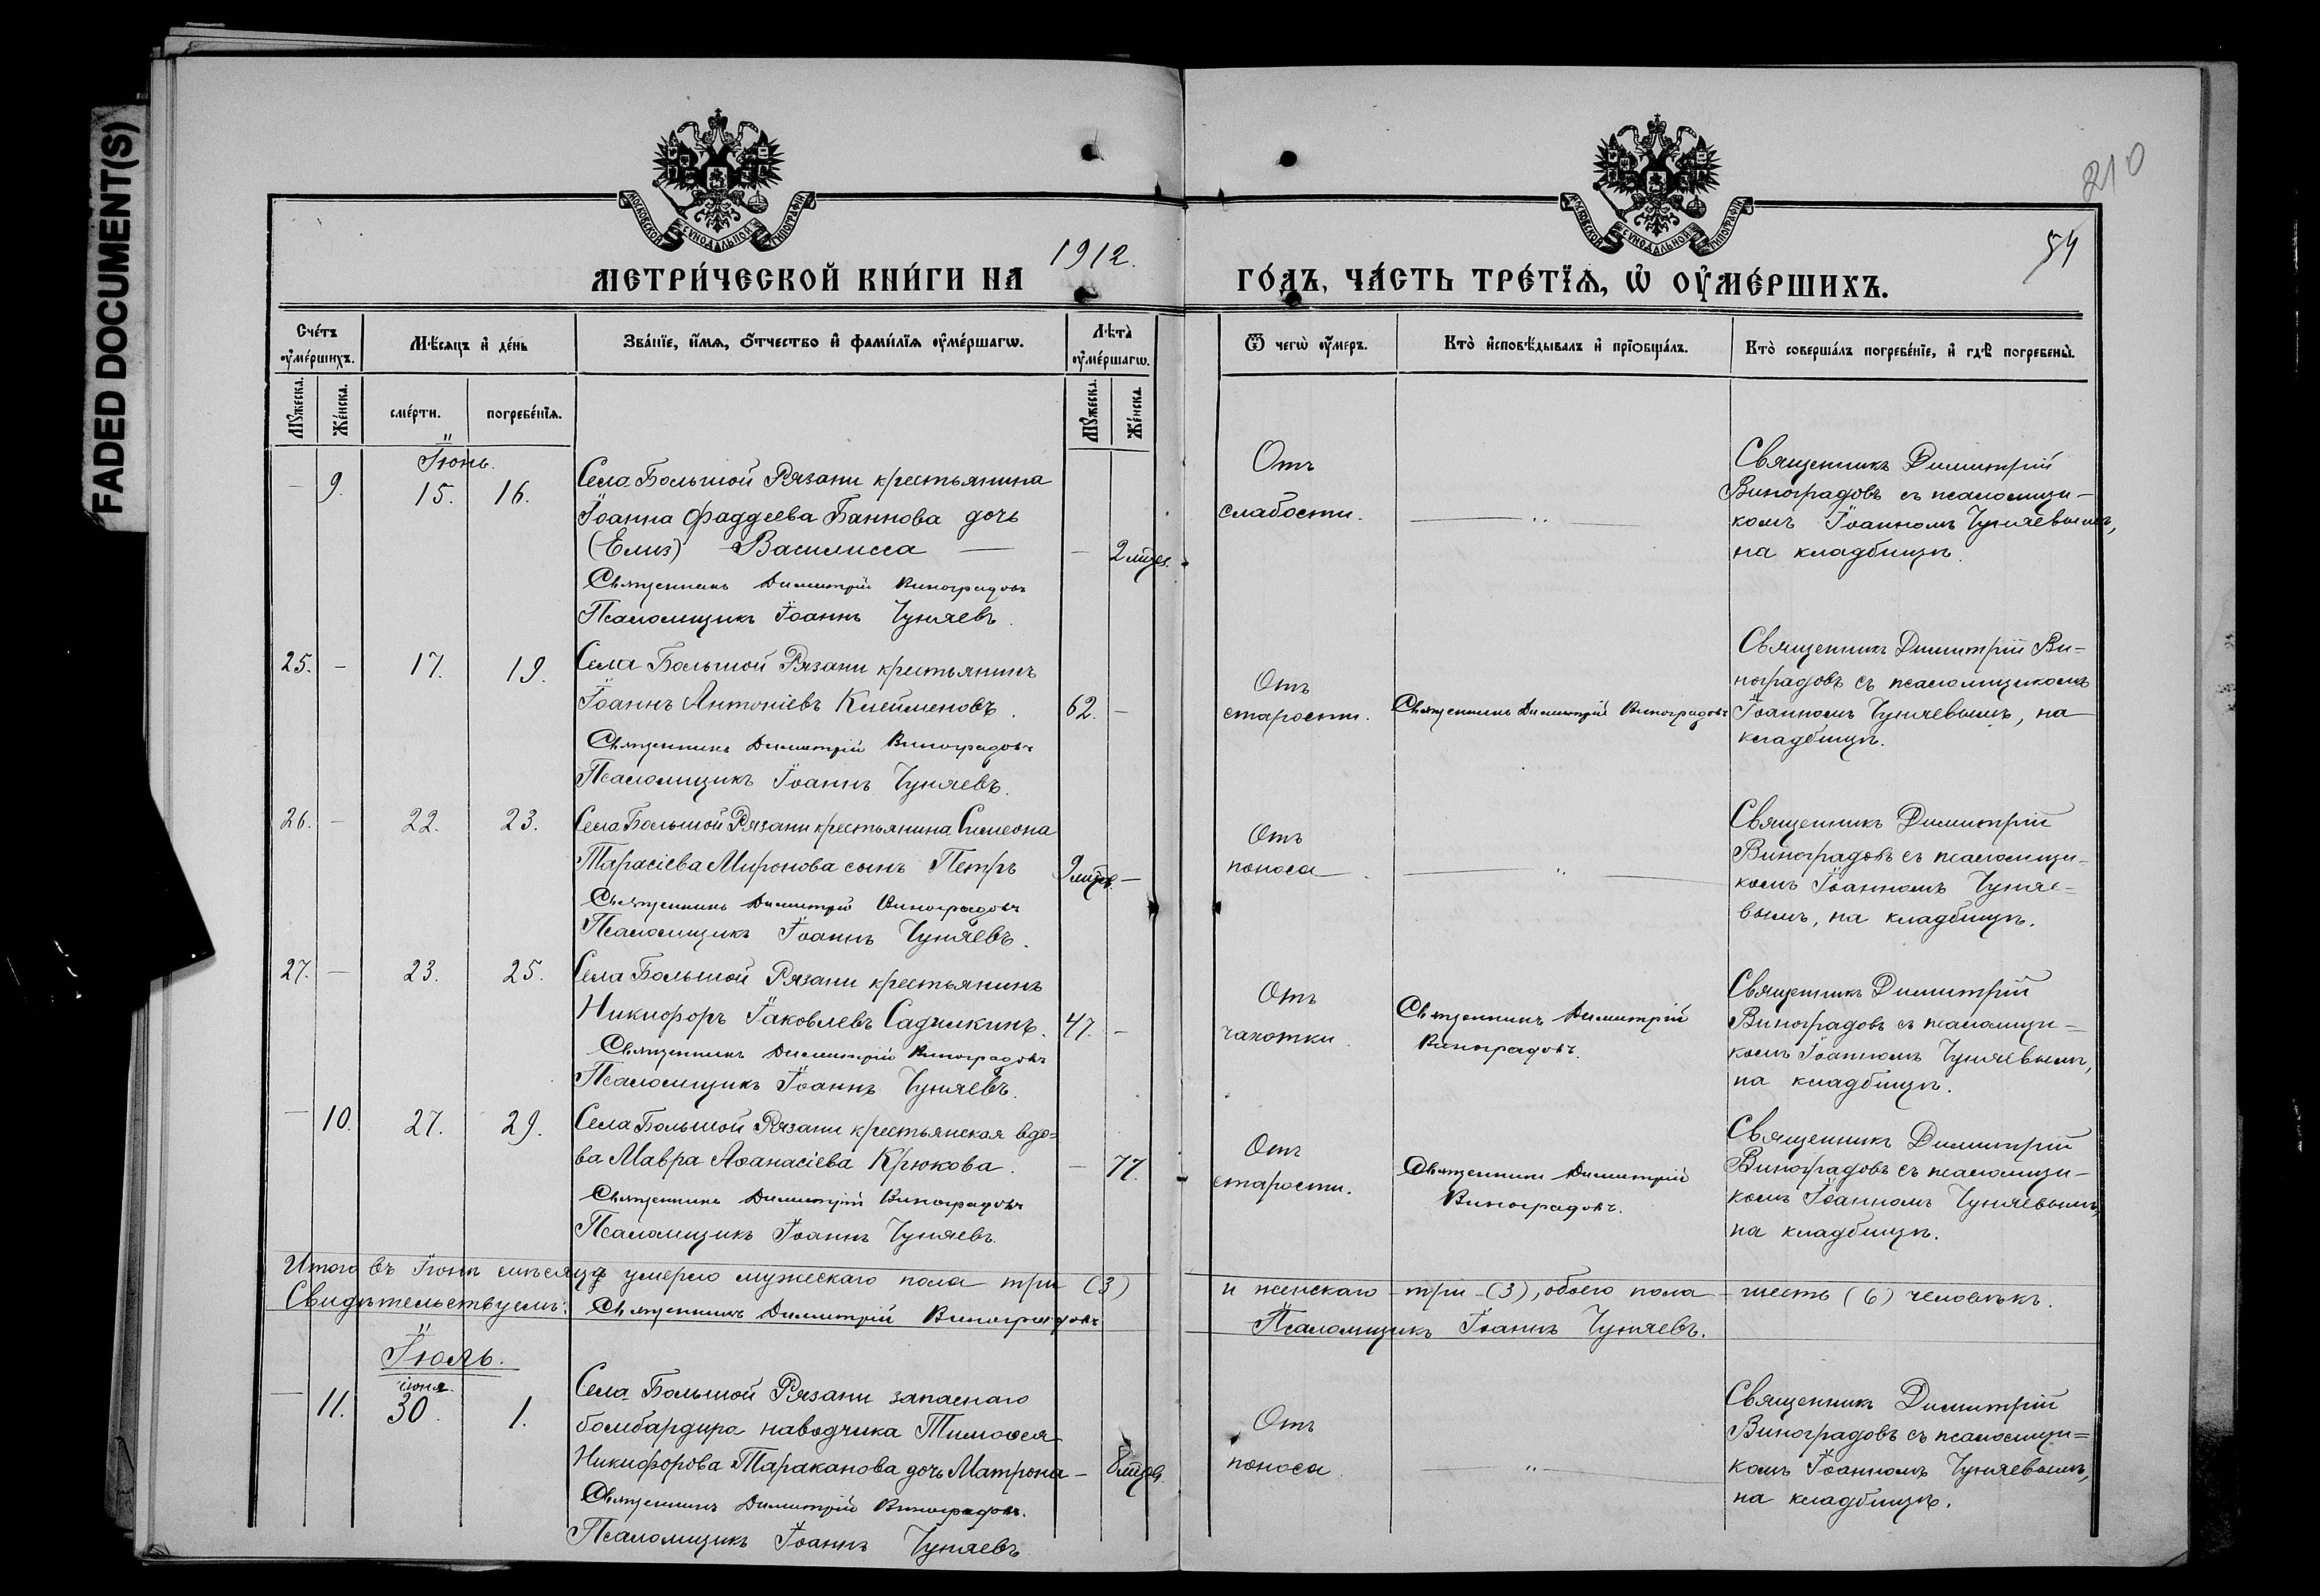 FADED DOCUMENT(S)
210
54
МОСКОВСКОЙ СѴНОДАЛЬНОЙ ТИПОГРАФІИ
МОСКОВСКОЙ СѴНОДАЛЬНОЙ ТИПОГРАФІИ
МЕТРИ́ЧЕСКОЙ КНИ́ГИ НА 1912. ГО́ДЪ, ЧА́СТЬ ТРЕ́ТЇѦ, Ѡ҆ ОУ҆МЕ́РШИХЪ.
Сче́тъ оу҆ме́ршихъ.
Мѣ́сяцъ и҆ де́нь
Зва́нїе, и҆́мѧ, ѻ҆́тчество и҆ фами́лїѧ оу҆ме́ршагѡ.
Лѣ́та оу҆ме́ршагѡ.
Ѿ чегѡ̀ оу҆́меръ.
Кто̀ и҆сповѣ́дывалъ и҆ прїѡбща́лъ.
Кто̀ соверша́лъ погребе́нїе, и҆ гдѣ̀ погребены̀.
Мꙋ́жеска.
Же́нска.
сме́рти.
погребе́нїѧ.
Мꙋ́жеска.
Же́нска.
Іюнь.
— 9. 15. 16.
Села Большой Рязани крестьянина
Іоанна Фаддеева Баннова дочь
(Елиз) Василисса — — 2 мѣс.
Священникъ Димитрій Виноградовъ
Псаломщикъ Іоаннъ Чуняевъ.
Отъ
слабости.
— „ —
Священникъ Димитрій
Виноградовъ съ псаломщи-
комъ Іоанномъ Чуняевымъ,
на кладбищѣ.
25. — 17. 19.
Села Большой Рязани крестьянинъ
Іоаннъ Антоніевъ Клейменовъ. 62. —
Священникъ Димитрій Виноградовъ
Псаломщикъ Іоаннъ Чуняевъ.
Отъ
старости.
Священникъ Димитрій Виноградовъ
Священникъ Димитрій Ви-
ноградовъ съ псаломщикомъ
Іоанномъ Чуняевымъ, на
кладбищѣ.
26. — 22. 23.
Села Большой Рязани крестьянина Симеона
Тарасіева Миронова сынъ Петръ 9 мѣс. —
Священникъ Димитрій Виноградовъ
Псаломщикъ Іоаннъ Чуняевъ.
Отъ
поноса.
— „ —
Священникъ Димитрій
Виноградовъ съ псаломщи-
комъ Іоанномъ Чуняе-
вымъ, на кладбищѣ.
27. — 23. 25.
Села Большой Рязани крестьянинъ
Никифоръ Іаковлевъ Садилкинъ. 47. —
Священникъ Димитрій Виноградовъ
Псаломщикъ Іоаннъ Чуняевъ.
Отъ
чахотки.
Священникъ Димитрій
Виноградовъ.
Священникъ Димитрій
Виноградовъ съ псаломщи=
комъ Іоанномъ Чуняевымъ,
на кладбищѣ.
— 10. 27. 29.
Села Большой Рязани крестьянская вдо=
ва Мавра Аѳанасіева Крюкова. — 77.
Священникъ Димитрій Виноградовъ
Псаломщикъ Іоаннъ Чуняевъ.
Отъ
старости.
Священникъ Димитрій
Виноградовъ.
Священникъ Димитрій
Виноградовъ съ псаломщи-
комъ Іоанномъ Чуняевымъ,
на кладбищѣ.
Итого въ Іюнѣ мѣсяцѣ умерло мужескаго пола три (3) и женскаго — три — (3), обоего пола — шесть (6) человѣкъ.
Свидѣтельствуемъ: Священникъ Димитрій Виноградовъ Псаломщикъ Іоаннъ Чуняевъ.
Іюль.
іюня
— 11. 30. 1.
Села Большой Рязани запаснаго
бомбардира наводчика Тимоѳея
Никифорова Тараканова дочь Матрона — 8 мѣс.
Священникъ Димитрій Виноградовъ.
Псаломщикъ Іоаннъ Чуняевъ
Отъ
поноса.
— „ —
Священникъ Димитрій
Виноградовъ съ псаломщи=
комъ Іоанномъ Чуняевымъ,
на кладбищѣ.